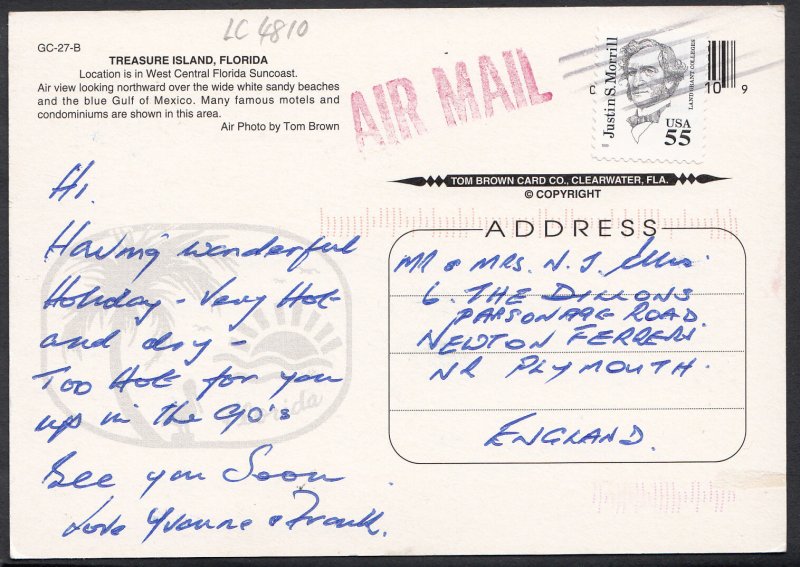 LC 4810
GC-27-B
TREASURE ISLAND, FLORIDA
Location is in West Central Florida Suncoast.
Air view looking northward over the wide white sandy beaches
and the blue Gulf of Mexico. Many famous motels and
condominiums are shown in this area.
Air Photo by Tom Brown
AIR MAIL
Justin S. Morrill
LAND GRANT COLLEGES
USA
55
C 10 9
TOM BROWN CARD CO., CLEARWATER, FLA.
© COPYRIGHT
Hi.
Having wonderful
Holiday - Very Hot
and dry -
Too Hot for you
up in the 90's
See you Soon
Love Yvonne & Frank.
Florida
ADDRESS
MR & MRS. N. J.
6. THE DILLONS
PARSONAGE ROAD.
NEWTON FERRERS.
NR PLYMOUTH.
ENGLAND.